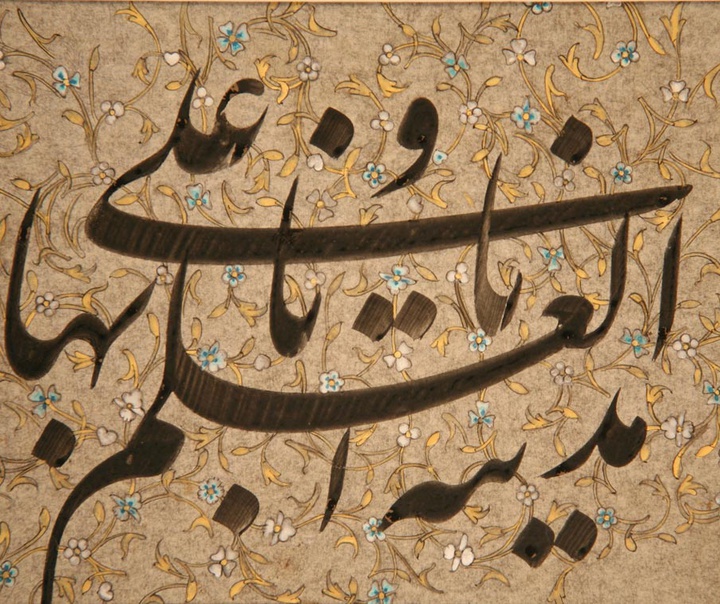 انا مدينة العلم و علی بابها